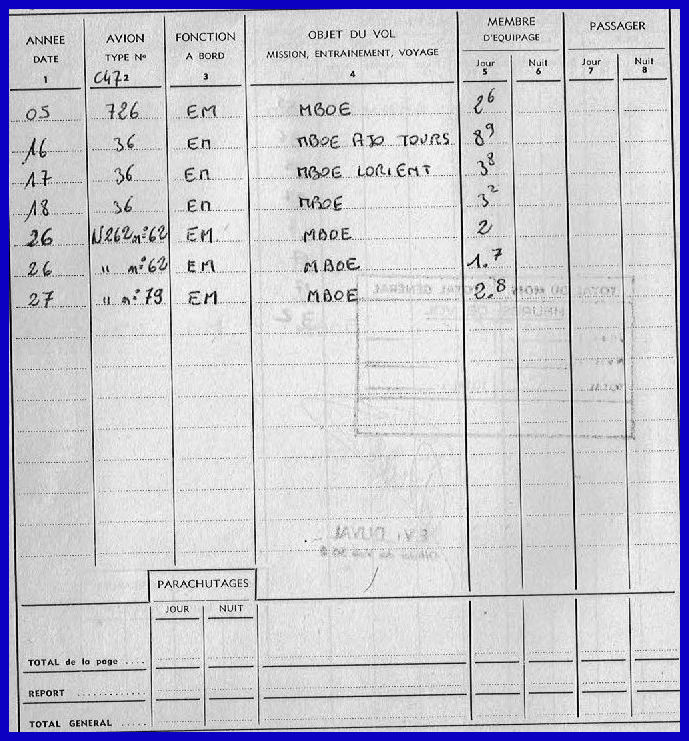 ANNEE AVION FONCTION OBJET DU VOL MEMBRE D'EQUIPAGE PASSAGER
DATE TYPE No A BORD MISSION, ENTRAINEMENT, VOYAGE Jour Nuit Jour Nuit
1 C47 2 3 4 5 6 7 8
05 726 EM MBOE 2⁶
16 36 EM MBOE AJO TOURS 8⁹
17 36 EM MBOE LORIENT 3⁸
18 36 EM MBOE 3²
26 N262 n°62 EM MBOE 2
26 " n°62 EM MBOE 1.⁷
27 " n°79 EM MBOE 2.⁸
TOTAL DU MOIS TOTAL GENERAL
HEURES DE VOL
TOTAL
E.V. DUVAL
PARACHUTAGES
JOUR NUIT
TOTAL de la page ....
REPORT ............
TOTAL GENERAL .....